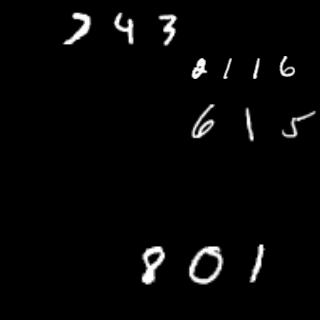 743
2116
615
801